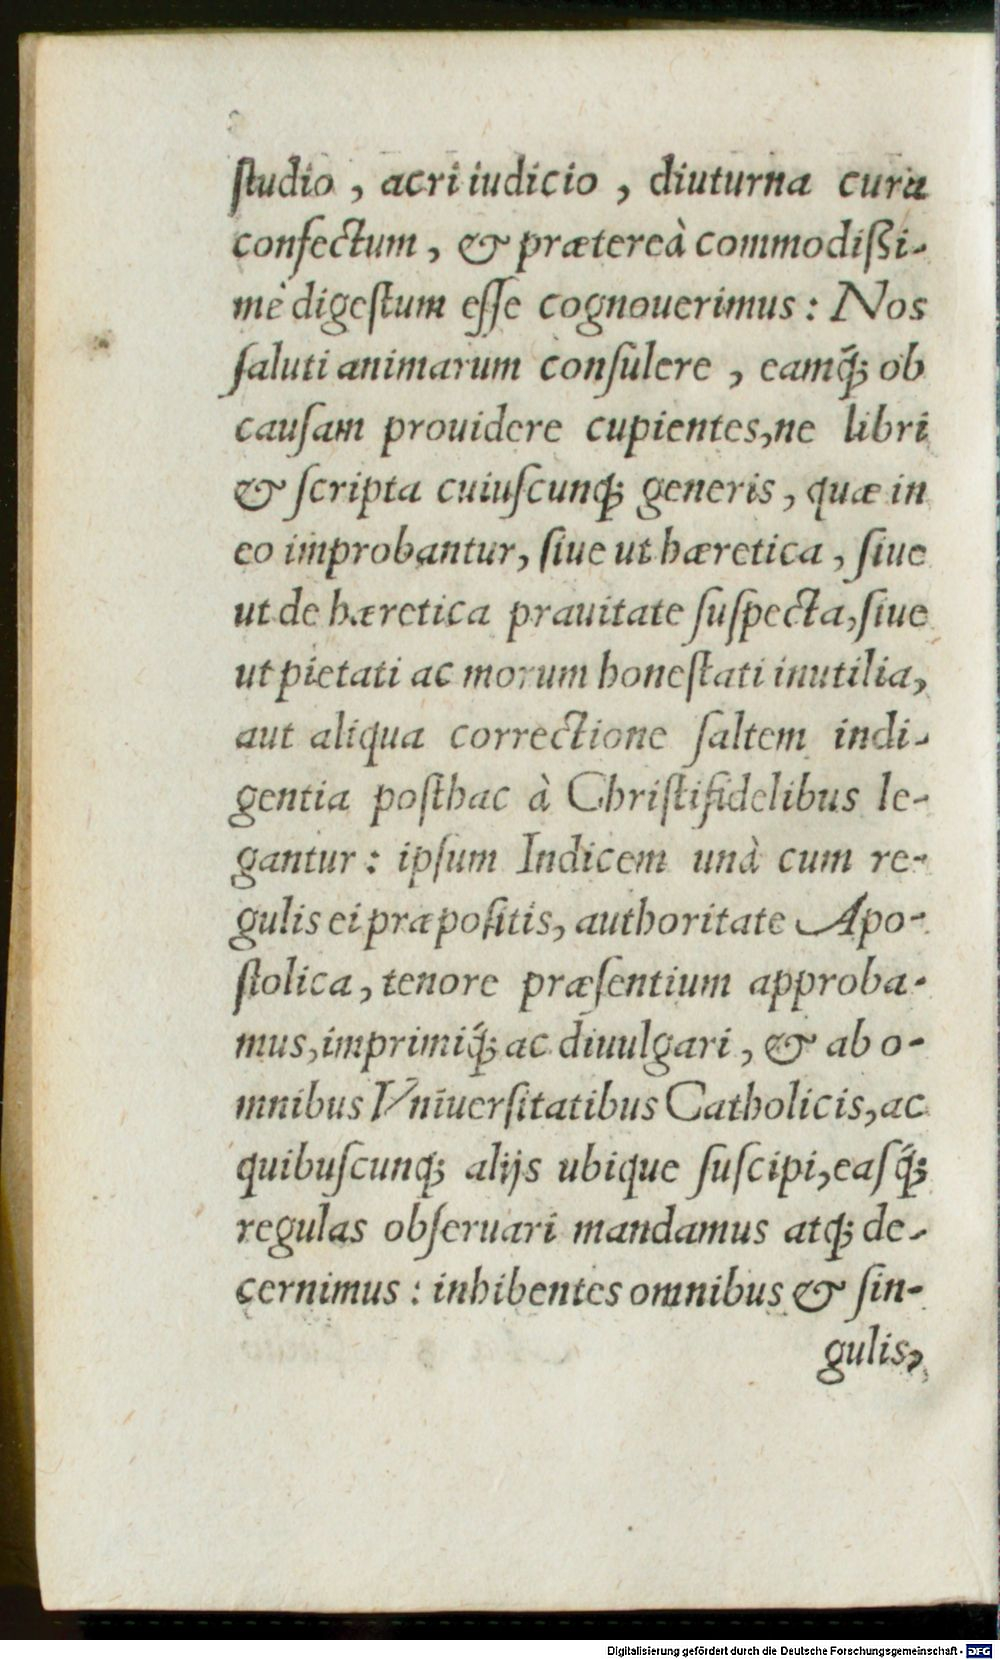 ſtudio , acri iudicio , diuturna cura
confectum , & prætereà commodiſsi-
mè digeſtum eſſe cognouerimus : Nos
ſaluti animarum conſulere , eamq́; ob
cauſam prouidere cupientes,ne libri
& ſcripta cuiuſcunq; generis , quæ in
eo improbantur, ſiue ut hæretica , ſiue
ut de hæretica prauitate ſuſpecta,ſiue
ut pietati ac morum honeſtati inutilia,
aut aliqua correctione ſaltem indi-
gentia poſthac à Chriſtifidelibus le-
gantur : ipſum Indicem unà cum re-
gulis ei præpoſitis, authoritate Apo-
ſtolica , tenore præſentium approba-
mus,imprimiq́; ac diuulgari , & ab o-
mnibus Vniuerſitatibus Catholicis,ac
quibuſcunq; alijs ubique ſuſcipi,eaſq́;
regulas obſeruari mandamus atq; de-
cernimus : inhibentes omnibus & ſin-
gulis,
Digitalisierung gefördert durch die Deutsche Forschungsgemeinschaft - DFG